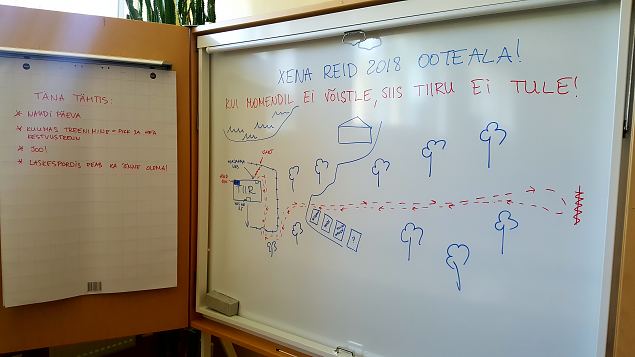 TÄNA TÄHTIS:
* NAUDI PÄEVA
* KUUMAS TREENIMINE = PIKK JA HEA
KESTVUSTREENING
* JOO!
* LASKESPORDIS PEAB KA ÕNNE OLEMA!
XENA REID 2018 OOTEALA!
KUI MOMENDIL EI VÕISTLE, SIIS TIIRU EI TULE!
TIIR